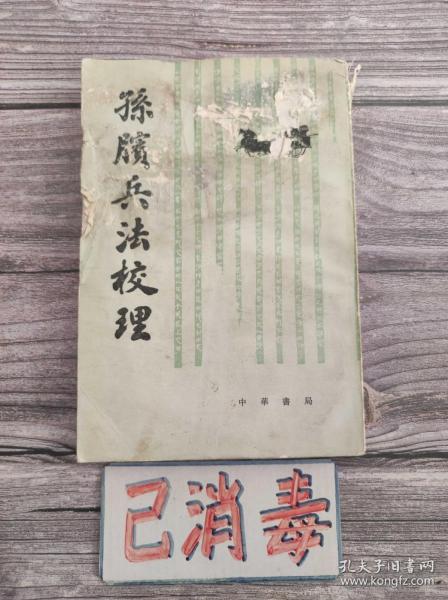 孫臏兵法校理
中華書局
已消毒
孔夫子旧书网
www.kongfz.com